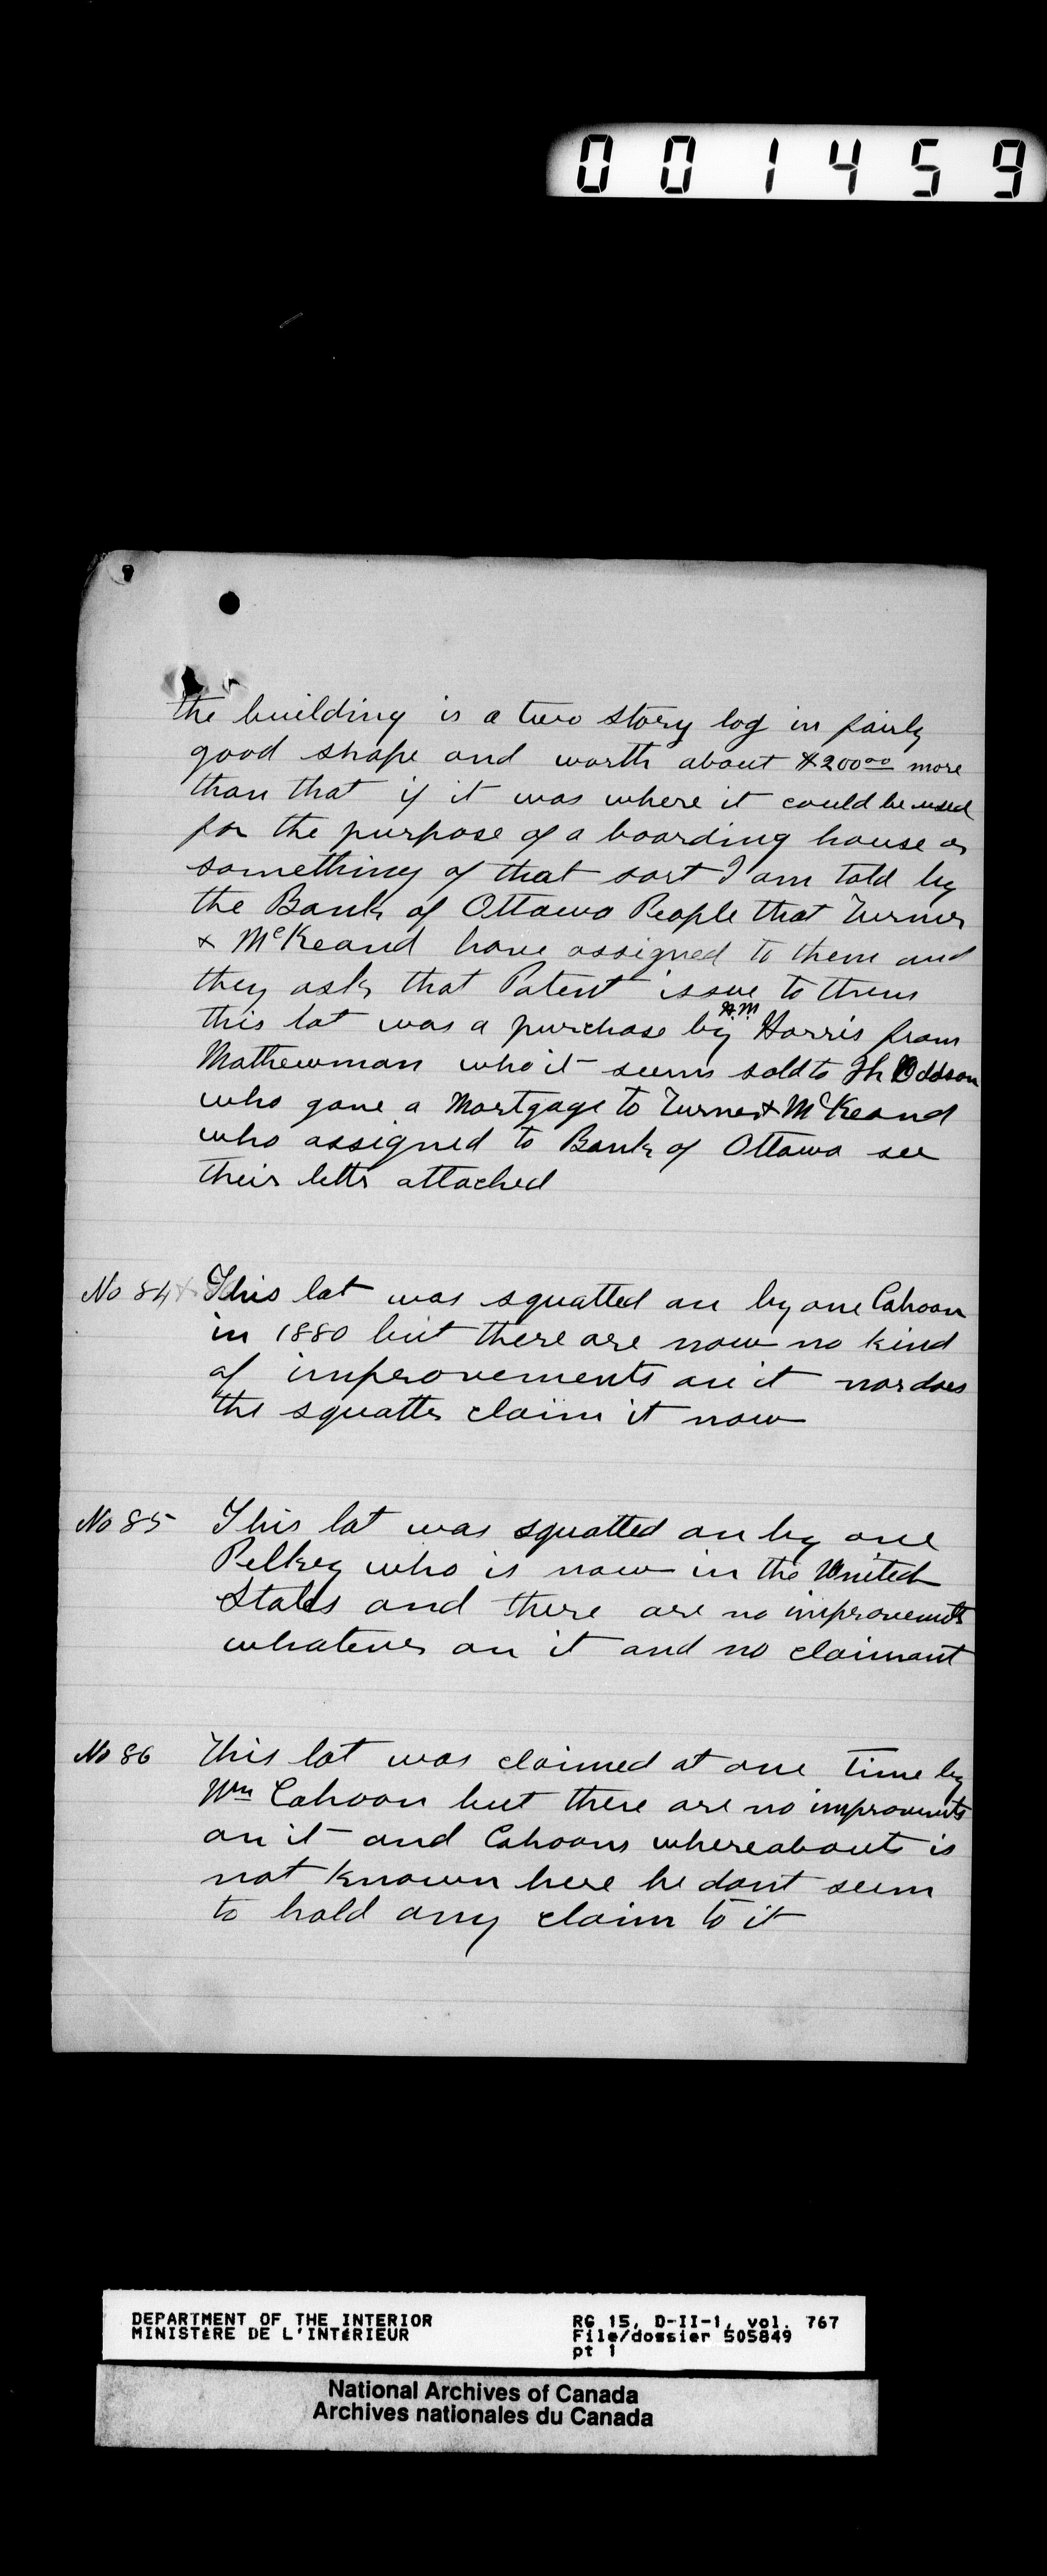 001459
the building is a two story log in fairly
good shape and worth about $200.00 more
than that if it was where it could be used
for the purpose of a boarding house or
something of that sort I am told by
the Bank of Ottawa People that Turner
& McKeand have assigned to them and
they ask that Patent issue to them
this lot was a purchase by A.M. Harris from
Mathewman who it seems sold to Oddson
who gave a Mortgage to Turner & McKeand
who assigned to Bank of Ottawa see
their letter attached
No 84 This lot was squatted on by one Cahoon
in 1880 but there are now no kind
of improvements on it nor does
the squatter claim it now
No 85 This lot was squatted on by one
Pelkey who is now in the United
States and there are no improvements
whatever on it and no claimant
No 86 This lot was claimed at one time by
Wm Cahoon but there are no improvements
on it and Cahoons whereabouts is
not known here he dont seem
to hold any claim to it
DEPARTMENT OF THE INTERIOR RG 15, D-II-1, vol. 767
MINISTÈRE DE L'INTÉRIEUR File/dossier 505849
pt 1
National Archives of Canada
Archives nationales du Canada